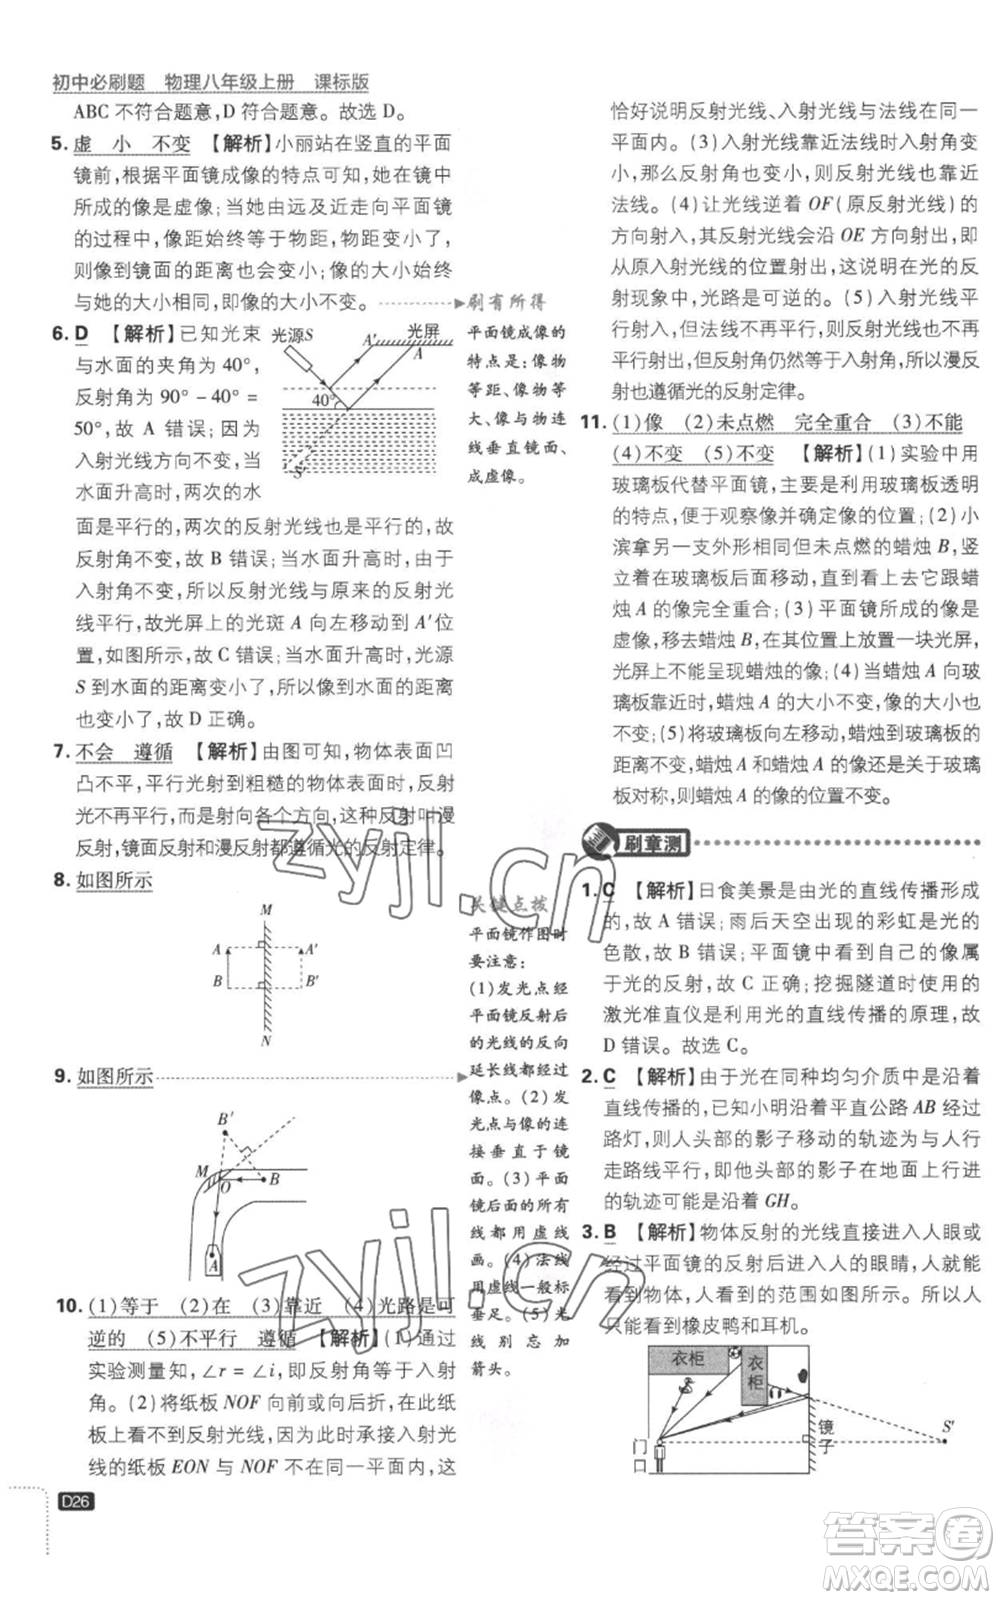 初中必刷题 物理八年级上册 课标版
ABC 不符合题意,D 符合题意。故选 D。
5. 虚 小 不变 【解析】小丽站在竖直的平面
镜前,根据平面镜成像的特点可知,她在镜中
所成的像是虚像;当她由远及近走向平面镜
的过程中,像距始终等于物距,物距变小了,
则像到镜面的距离也会变小;像的大小始终
与她的大小相同,即像的大小不变。
刷有所得
平面镜成像的
特点是:像物
等距、像物等
大、像与物连
线垂直镜面、
成虚像。
6. D 【解析】已知光束
与水面的夹角为 40°,
反射角为 90° - 40° =
50°,故 A 错误;因为
入射光线方向不变,当
水面升高时,两次的水
光源S
A′
光屏
A
40°
S′
面是平行的,两次的反射光线也是平行的,故
反射角不变,故 B 错误;当水面升高时,由于
入射角不变,所以反射光线与原来的反射光
线平行,故光屏上的光斑 A 向左移动到 A′位
置,如图所示,故 C 错误;当水面升高时,光源
S 到水面的距离变小了,所以像到水面的距离
也变小了,故 D 正确。
7. 不会 遵循 【解析】由图可知,物体表面凹
凸不平,平行光射到粗糙的物体表面时,反射
光不再平行,而是射向各个方向,这种反射叫漫
反射,镜面反射和漫反射都遵循光的反射定律。
8. 如图所示
M
A
A′
B
B′
N
9. 如图所示
B′
M
O
B
A
关键点拨
平面镜作图时
要注意:
(1)发光点经
平面镜反射后
的光线的反向
延长线都经过
像点。(2)发
光点与像的连
接垂直于镜
面。(3)平面
镜后面的所有
线都用虚线
画。(4)法线
用虚线一般标
垂足。(5)光
线别忘加
箭头。
10. (1)等于 (2)在 (3)靠近 (4)光路是可
逆的 (5)不平行 遵循 【解析】(1)通过
实验测量知,∠r = ∠i,即反射角等于入射
角。(2)将纸板 NOF 向前或向后折,在此纸
板上看不到反射光线,此现象恰好说明反射光
线的纸板 EON 与 NOF 在同一平面内时,这
恰好说明反射光线、入射光线与法线在同一
平面内。(3)入射光线靠近法线时入射角变
小,那么反射角也变小,反射光线也靠近
法线。(4)让光线逆着 OF(原反射光线)的
方向射入,其反射光线会沿 OE 方向射出,即
从原入射光线的位置射出,这说明在光的反
射现象中,光路是可逆的。(5)入射光线平
行射入,但法线不再平行,反射光线也不再平
行,但反射角仍然等于入射角,所以漫反
射也遵循光的反射定律。
11. (1)像 (2)未点燃 完全重合 (3)不能
(4)不变 (5)不变 【解析】(1)实验中用
玻璃板代替平面镜,主要是利用玻璃板透明
的特点,便于观察像并确定像的位置;(2)小
滨拿另一支外形相同但未点燃的蜡烛 B,竖
立着在玻璃板后面移动,直到看上去它跟蜡
烛 A 的像完全重合;(3)平面镜所成的像是
虚像,移去蜡烛 B,在其位置上放置一块光屏,
光屏上不能呈现蜡烛的像;(4)当蜡烛 A 向玻
璃板靠近时,蜡烛 A 的大小不变,像的大小也
不变;(5)将玻璃板移走,蜡烛 A 到玻璃板的
距离不变,蜡烛 A 和蜡烛 A 的像还是关于玻璃
板对称,则蜡烛 A 的像的位置不变。
刷章测
1. C 【解析】日食美景是由光的直线传播形成
的,故 A 错误;雨后天空出现的彩虹是光的
色散,故 B 错误;平面镜中看到自己的像属
于光的反射,故 C 正确;挖掘隧道时使用的
激光准直仪是利用光的直线传播的原理,故
D 错误。故选 C。
2. C 【解析】由于光在同种均匀介质中是沿着
直线传播的,已知小明沿着平直公路 AB 经过
路灯,则人头部的影子移动的轨迹为与人行
走路线平行,即他头部的影子在地面上行进
的轨迹可能是沿着 GH。
3. B 【解析】物体反射的光线直接进入人眼或
经过平面镜的反射后进入人的眼睛,人就能
看到物体,人看到的范围如图所示。所以人
只能看到橡皮鸭和耳机。
衣柜
衣柜
门口
镜子
S′
D26
zyjl.cn
zyjl.cn
答案卷
MXQE.COM